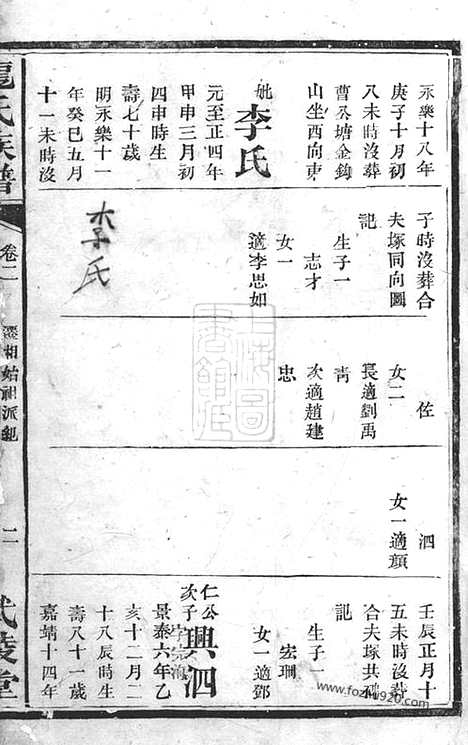 永樂十八年
庚子十月初
八未時沒葬
曹公塘金鈎
山坐西向東
妣李氏
元至正四年
甲申三月初
四申時生
壽七十歲
明永樂十一
年癸巳五月
十一未時沒
子時沒葬合
夫塚同向圖
記
生子一
志才
女一
適李思如
李氏
佐
女二
長適劉禹
靑
次適趙建
忠
泗
女一適顏
壬辰正月十
五未時沒葬
合夫塚共碑
記
生子一
宏珊
女一適鄧
仁公
次子
興泗
字宗海
景泰六年乙
亥十二月二
十八辰時生
壽八十一歲
嘉靖十四年
龍氏族譜
卷二
相始祖派
二
武陵堂
上海圖書館藏
www.fozhu920.com